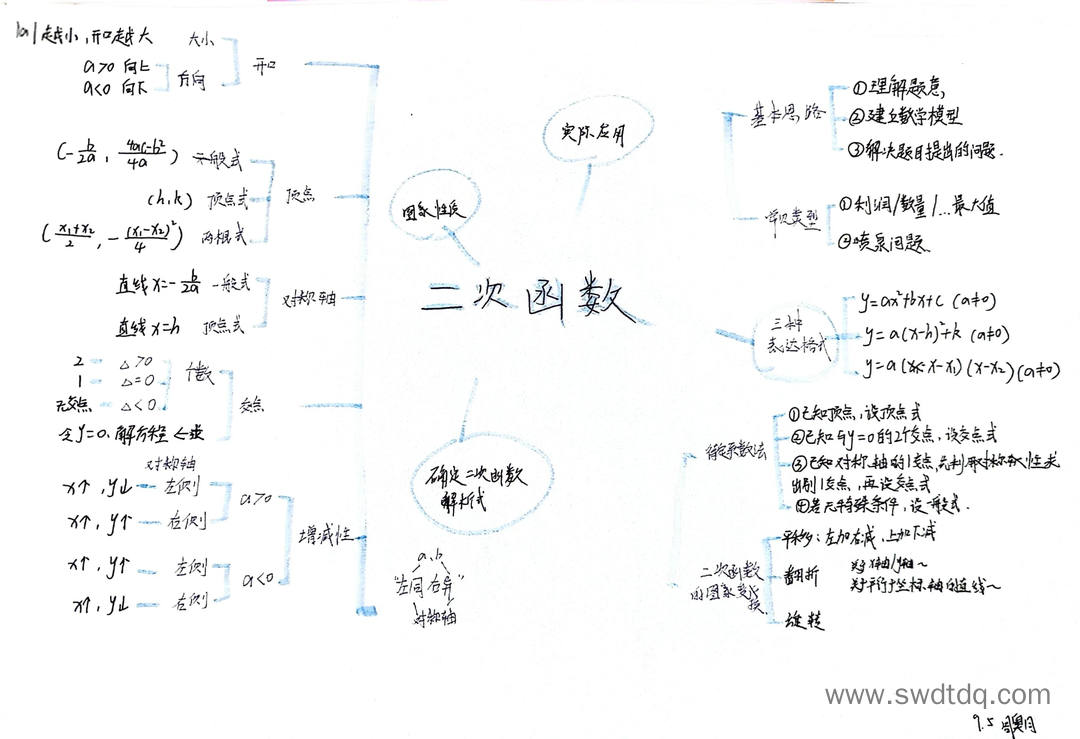 二次函数
图象性质
开口
大小
|a|越小,开口越大
方向
a>0 向上
a<0 向下
顶点
一般式
(-b/2a, 4ac-b²/4a)
顶点式
(h,k)
两根式
(x₁+x₂/2, -(x₁-x₂)²/4)
对称轴
直线x=-b/2a 一般式
直线x=h 顶点式
交点
个数
2 - △>0
1 - △=0
无交点 - △<0
令y=0,解方程 ← 求
增减性
对称轴
a>0
x↑,y↓ - 左侧
x↑,y↑ - 右侧
a<0
x↑,y↑ - 左侧
x↑,y↓ - 右侧
a,b
"左同右异"
对称轴
实际应用
基本思路
①理解题意,
②建立数学模型
③解决题目提出的问题.
常见类型
①利润/数量/…最大值
②喷泉问题.
三种
表达格式
y=ax²+bx+c (a≠0)
y=a(x-h)²+k (a≠0)
y=a(x-x₁)(x-x₂)(a≠0)
确定二次函数
解析式
待定系数法
①已知顶点,设顶点式
②已知与y=0的2个交点,设交点式
③已知对称轴的1交点,先利用对称性求
出别1交点,再设交点式
④若无特殊条件,设一般式.
二次函数
的图象变换
平移:左加右减,上加下减
翻折
对x轴/y轴~
对平行于坐标轴的直线~
旋转
www.swdtdq.com
9.5